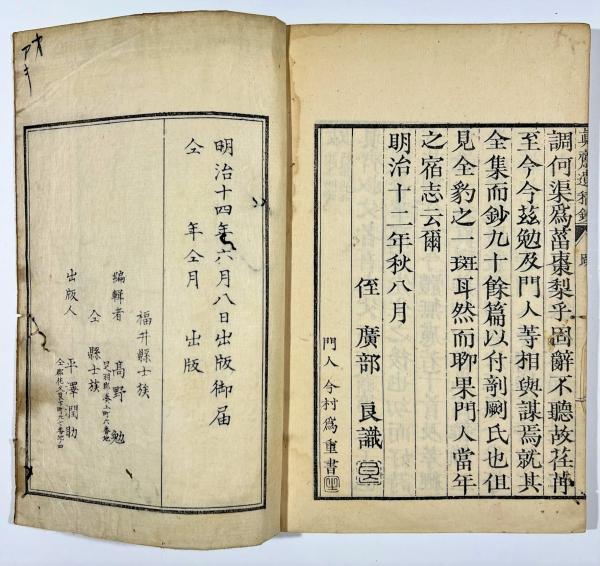 調何渠爲菑棗梨乎固辭不聽故荏苒
至今今玆勉及門人等相與謀焉就其
全集而鈔九十餘篇以付剞劂氏也但
見全豹之一斑耳然而聊果門人當年
之宿志云爾
明治十二年秋八月
侄 廣部 良識
門人 今村爲重書
明治十四年六月八日出版御届
仝 年仝月 出版
福井縣士族
編輯者 髙野 勉
足羽郡湊上町六番地
仝 縣士族
出版人 平澤潤助
オ
アキ